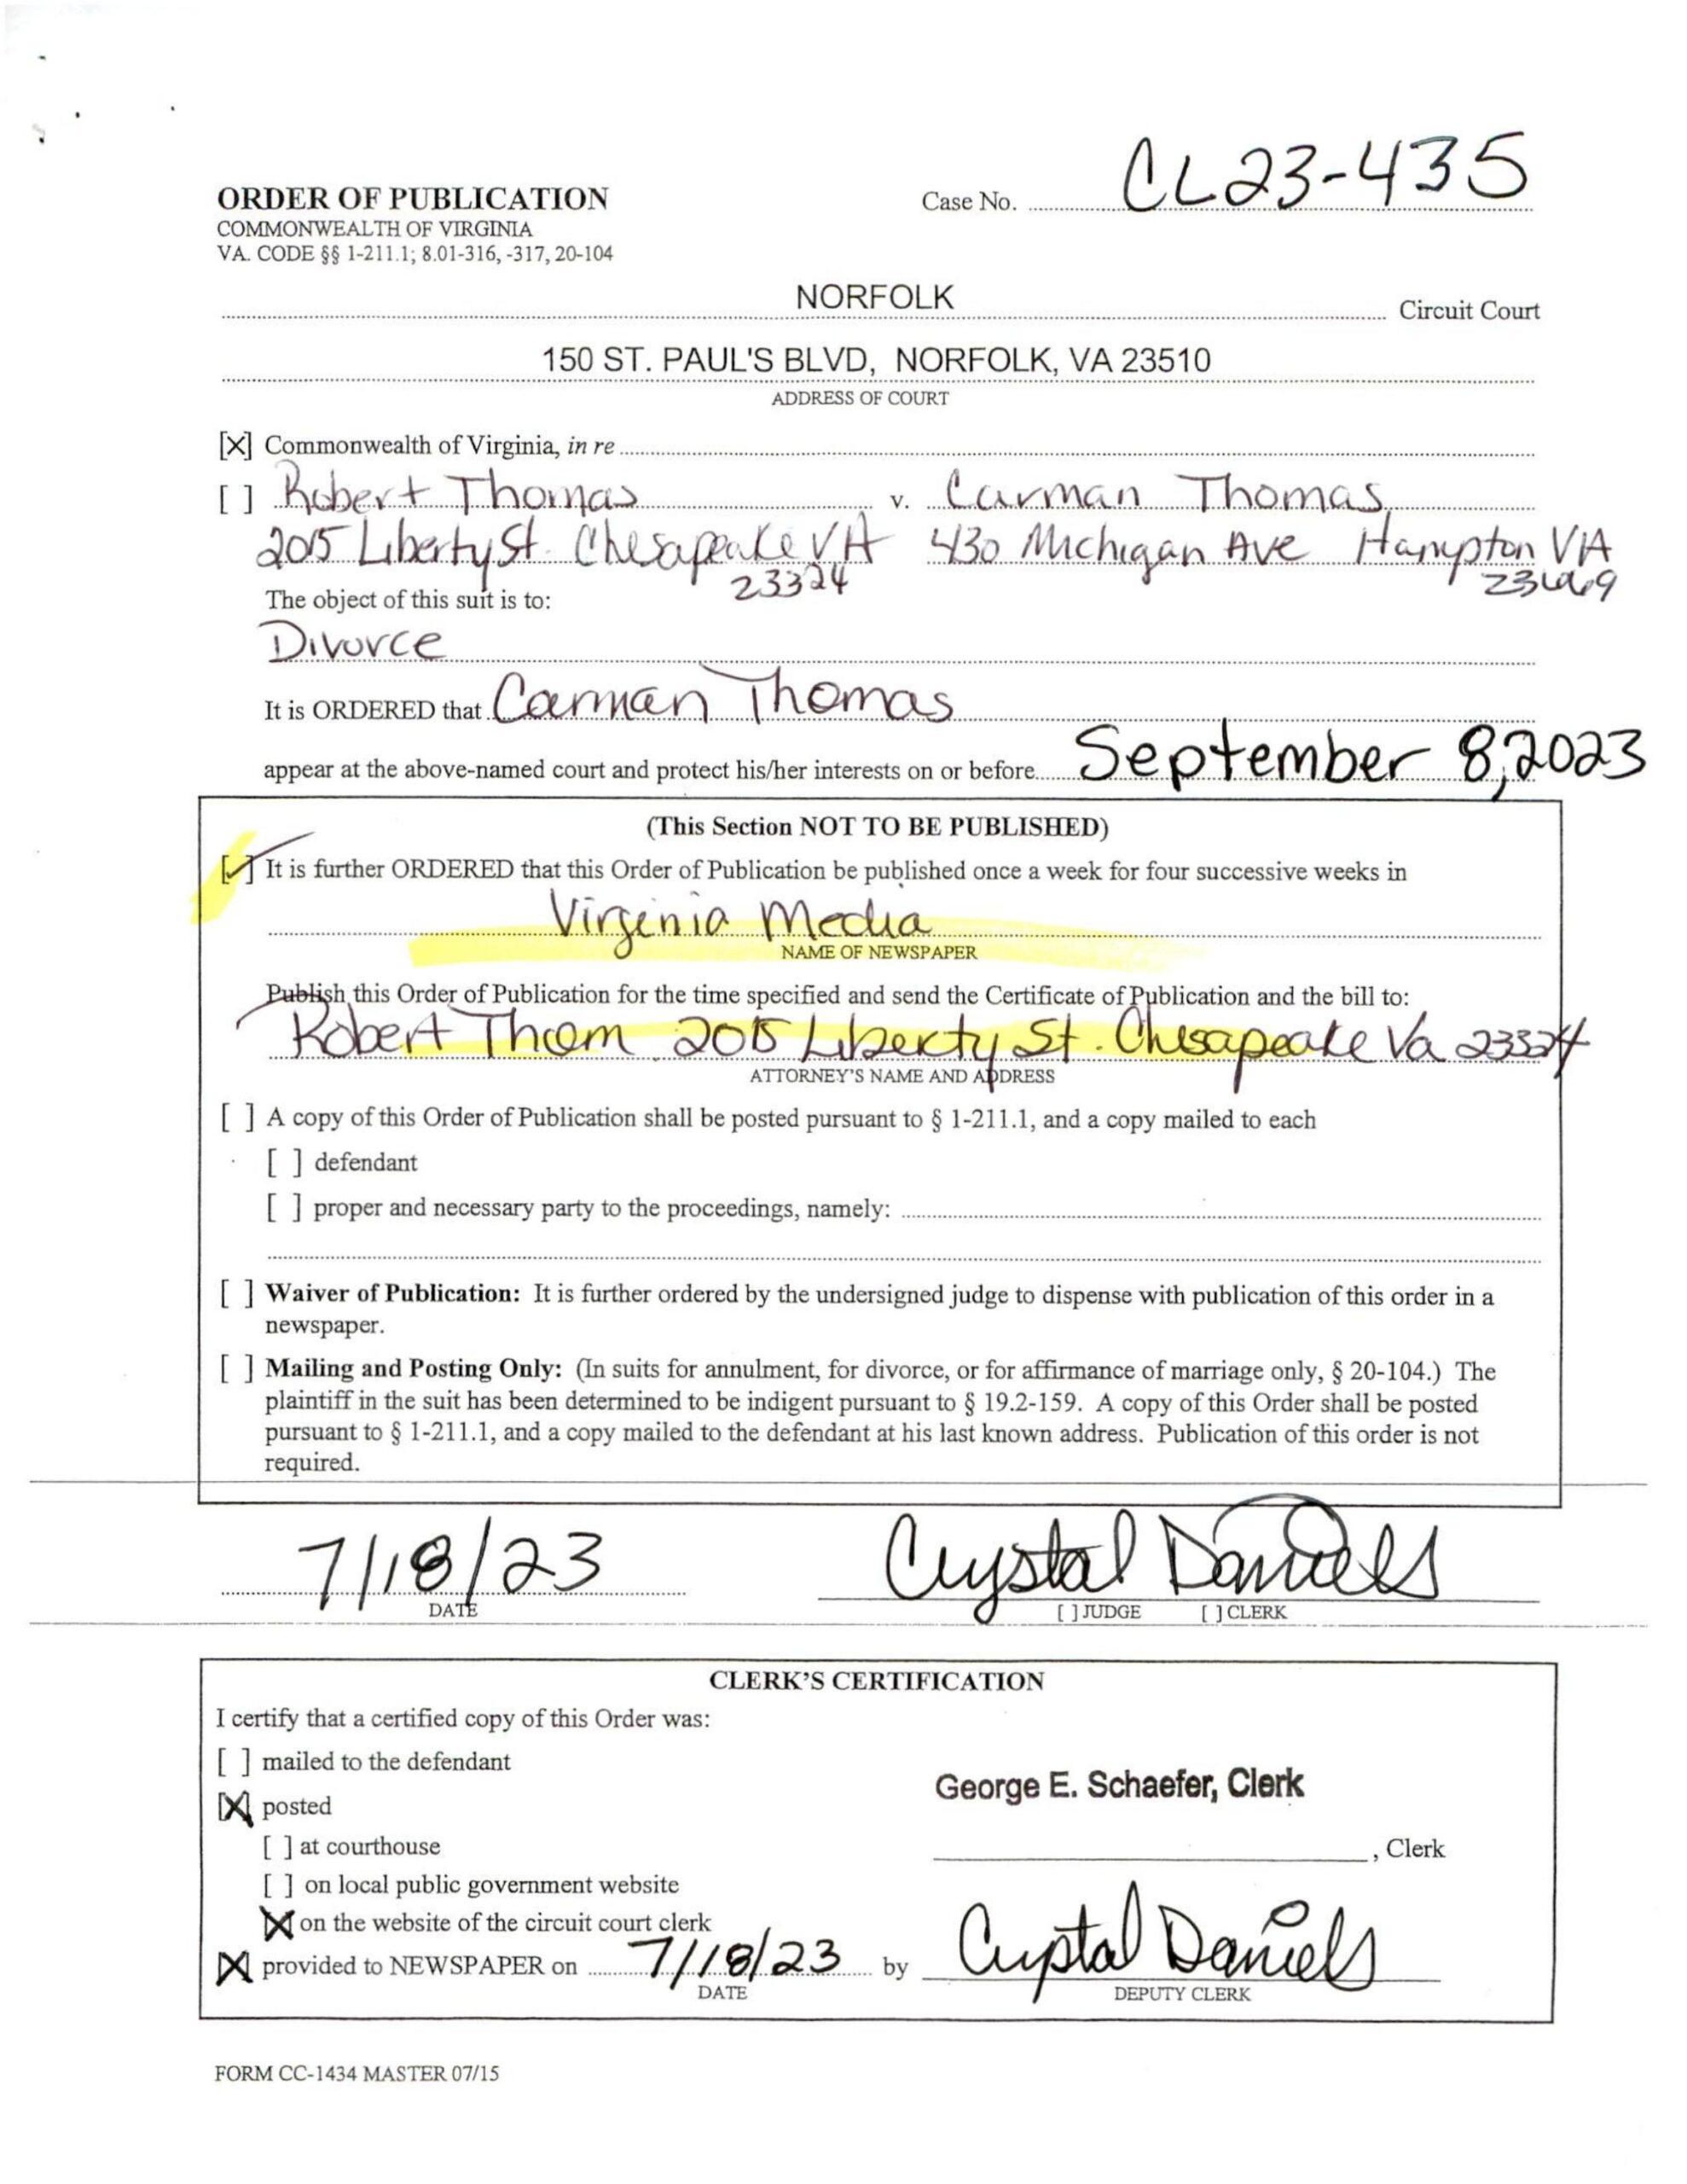 ORDER OF PUBLICATION
COMMONWEALTH OF VIRGINIA
VA. CODE §§ 1-211.1; 8.01-316, -317, 20-104
Case No. CL23-435
NORFOLK Circuit Court
150 ST. PAUL'S BLVD, NORFOLK, VA 23510
ADDRESS OF COURT
[X] Commonwealth of Virginia, in re
[ ] Robert Thomas v. Carman Thomas
2015 Liberty St. Chesapeake VA 430 Michigan Ave Hampton VA
23324 23669
The object of this suit is to:
Divorce
It is ORDERED that Carman Thomas
appear at the above-named court and protect his/her interests on or before September 8, 2023
(This Section NOT TO BE PUBLISHED)
[✓] It is further ORDERED that this Order of Publication be published once a week for four successive weeks in
Virginia Media
NAME OF NEWSPAPER
Publish this Order of Publication for the time specified and send the Certificate of Publication and the bill to:
Robert Thom 2015 Liberty St. Chesapeake Va 23324
ATTORNEY'S NAME AND ADDRESS
[ ] A copy of this Order of Publication shall be posted pursuant to § 1-211.1, and a copy mailed to each
[ ] defendant
[ ] proper and necessary party to the proceedings, namely:
[ ] Waiver of Publication: It is further ordered by the undersigned judge to dispense with publication of this order in a
newspaper.
[ ] Mailing and Posting Only: (In suits for annulment, for divorce, or for affirmance of marriage only, § 20-104.) The
plaintiff in the suit has been determined to be indigent pursuant to § 19.2-159. A copy of this Order shall be posted
pursuant to § 1-211.1, and a copy mailed to the defendant at his last known address. Publication of this order is not
required.
7/18/23 Crystal Daniels
DATE [ ] JUDGE [ ] CLERK
CLERK'S CERTIFICATION
I certify that a certified copy of this Order was:
[ ] mailed to the defendant
George E. Schaefer, Clerk
[X] posted
[ ] at courthouse
, Clerk
[ ] on local public government website
[X] on the website of the circuit court clerk
[X] provided to NEWSPAPER on 7/18/23 by Crystal Daniels
DATE DEPUTY CLERK
FORM CC-1434 MASTER 07/15